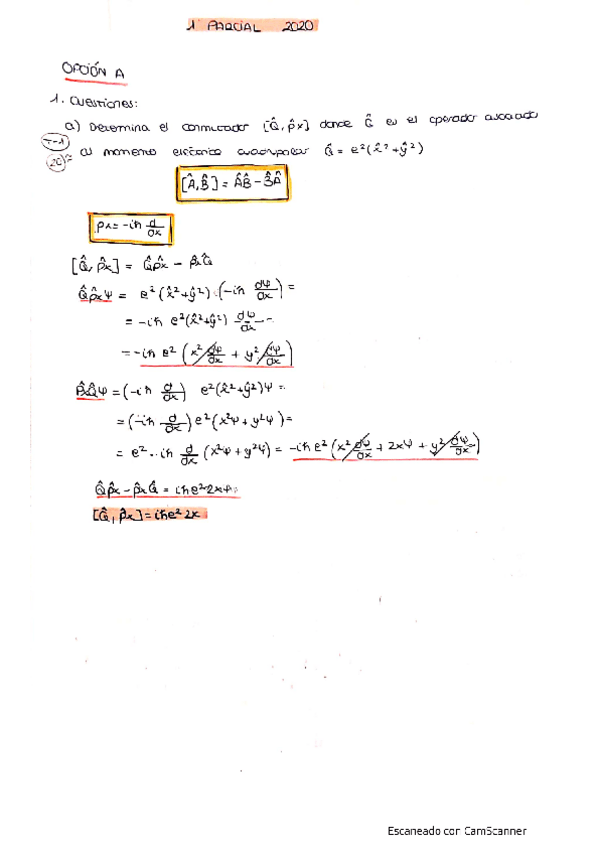 1 PARCIAL 2020
OPCIÓN A
1. Cuestiones:
a) Determina el conmutador [Q̂, p̂x] donde Q̂ es el operador asociado
T-1
al momento eléctrico cuadrupolar Q̂ = e²(x̂² + ŷ²)
[Â, B̂] = ÂB̂ - B̂Â
px = -iħ d/dx
[Q̂, p̂x] = Q̂p̂x - p̂xQ̂
Q̂p̂xψ = e²(x̂²+ŷ²)·(-iħ dψ/dx) =
= -iħ e²(x̂²+ŷ²) dψ/dx =
= -iħ e² (x² dψ/dx + y² dψ/dx)
p̂xQ̂ψ = (-iħ d/dx) e²(x̂²+ŷ²)ψ =
= (-iħ d/dx) e²(x²ψ + y²ψ) =
= e² · -iħ d/dx (x²ψ + y²ψ) = -iħe² (x² dψ/dx + 2xψ + y² dψ/dx)
Q̂p̂x - p̂xQ̂ = iħe²2xψ
[Q̂, p̂x] = iħe²2x
Escaneado con CamScanner